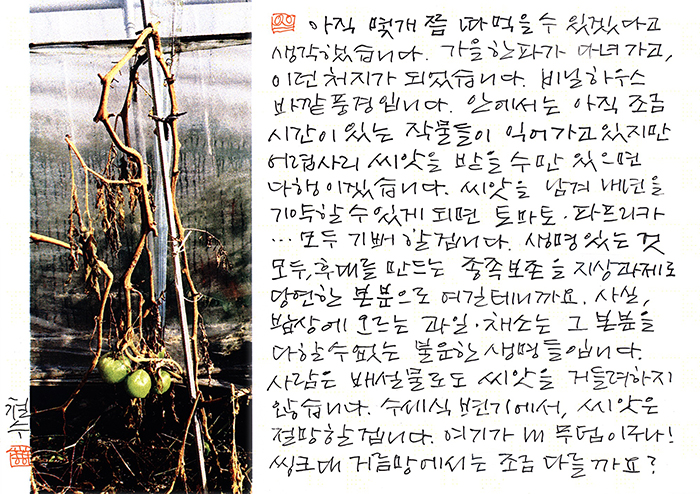 아직 몇개 쯤 따 먹을 수 있겠다고
생각했습니다. 가을 한파가 다녀 가고,
이런 처지가 되었습니다. 비닐하우스
바깥 풍경입니다. 안에서는 아직 조금
시간이 있는 작물들이 익어가고 있지만
어렵사리 씨앗을 받을 수만 있으면
다행이겠습니다. 씨앗을 남겨 내년을
기약할 수 있게 되면 토마토·파프리카
… 모두 기뻐 할겁니다. 생명 있는 것
모두, 후대를 만드는 종족보존을 지상과제로
당연한 본분으로 여길테니까요. 사실,
밥상에 오르는 과일·채소는 그 본분을
다할 수 없는 불운한 생명들입니다.
사람은 배설물로도 씨앗을 거들려하지
않습니다. 수세식 변기에서, 씨앗은
절망할겁니다. 여기가 내 무덤이구나!
씽크대 거름망에서는 조금 다를까요?
철
수